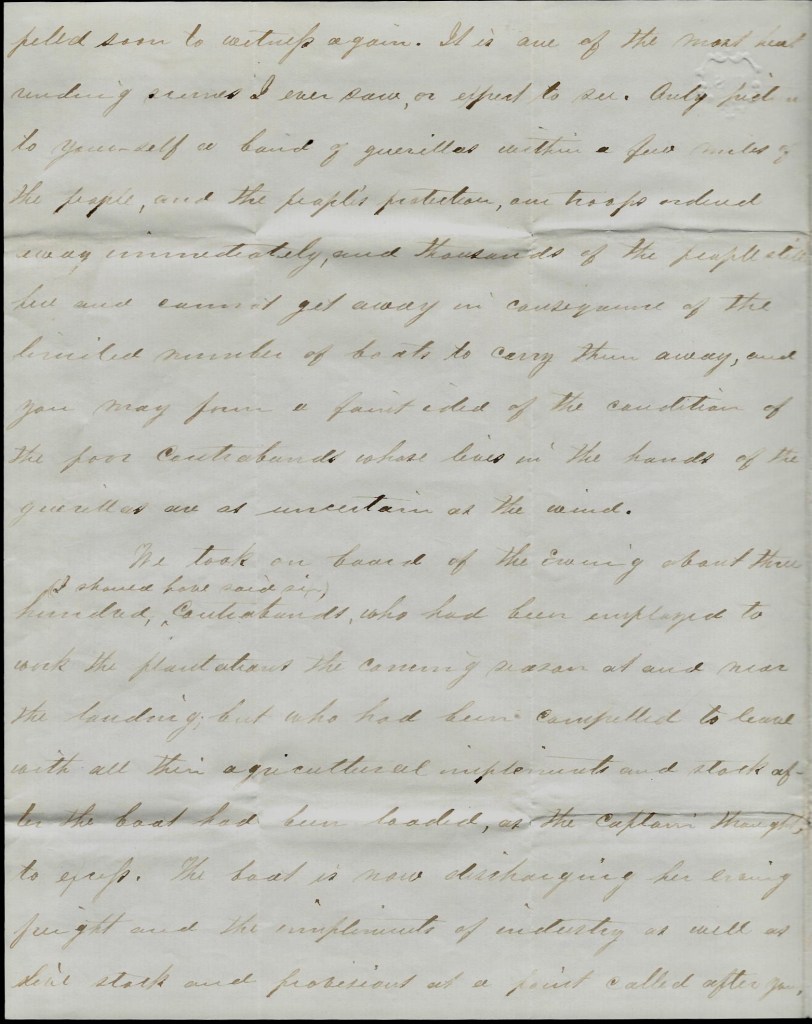 pelled soon to witness again. It is one of the most heart
rending scenes I ever saw, or expect to see. Only picture
to yourself a band of guerillas within a few miles of
the people, and the people's protection, our troops ordered
away immediately, and thousands of the people still
here and cannot get away in consequence of the
limited number of boats to carry them away, and
you may form a faint idea of the condition of
the poor Contrabands whose lives in the hands of the
guerillas are as uncertain as the wind.
We took on board of the Ewing about three
(I should have said six)
hundred, Contrabands, who had been employed to
work the plantations the coming season at and near
the landing; but who had been compelled to leave
with all their agricultural implements and stock af-
ter the boat had been loaded, as the Captain thought,
to excess. The boat is now discharging her living
freight and the implements of industry as well as
live stock and provisions at a point called after you,